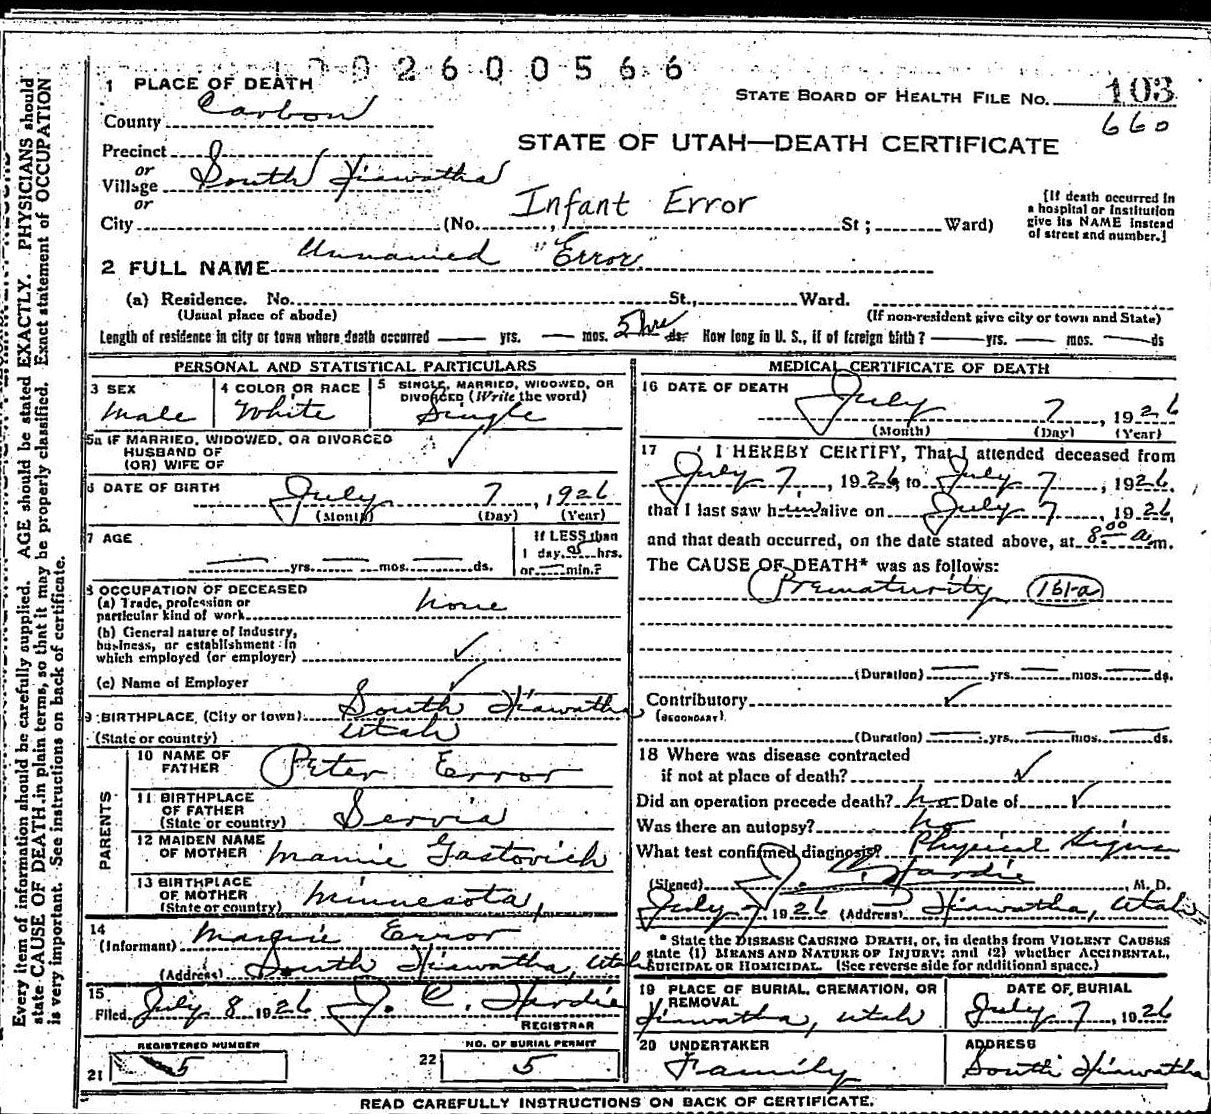 0 0 2 6 0 0 5 6 6
1 PLACE OF DEATH
STATE BOARD OF HEALTH FILE NO. 103
660
County Carbon
STATE OF UTAH—DEATH CERTIFICATE
Precinct
or
Village South Hiawatha
or
Infant Error
City (No. , St ; Ward)
[If death occurred in
a hospital or institution
give its NAME instead
of street and number.]
2 FULL NAME Unnamed "Error"
(a) Residence. No. St., Ward.
(Usual place of abode) (If non-resident give city or town and State)
Length of residence in city or town where death occurred — yrs. — mos. 5 hrs ds. How long in U. S., if of foreign birth? — yrs. — mos. — ds
PERSONAL AND STATISTICAL PARTICULARS
3 SEX Male
4 COLOR OR RACE White
5 SINGLE, MARRIED, WIDOWED, OR
DIVORCED (Write the word)
Single
5a IF MARRIED, WIDOWED, OR DIVORCED
HUSBAND OF
(OR) WIFE OF ✓
6 DATE OF BIRTH July 7, 1926
(Month) (Day) (Year)
7 AGE
— yrs. — mos. — ds.
If LESS than
1 day, 5 hrs.
or — min.?
8 OCCUPATION OF DECEASED
(a) Trade, profession or
particular kind of work none
(b) General nature of Industry,
business, or establishment in
which employed (or employer) ✓
(c) Name of Employer ✓
9 BIRTHPLACE (City or town) South Hiawatha
(State or country) Utah
PARENTS
10 NAME OF
FATHER Peter Error
11 BIRTHPLACE
OF FATHER
(State or country) Servia
12 MAIDEN NAME
OF MOTHER Mamie Gastovich
13 BIRTHPLACE
OF MOTHER
(State or country) Minnesota,
14
(Informant) Margie Error
(Address) South Hiawatha, Utah
15
Filed July 8 1926 J. C. Hardie
REGISTRAR
REGISTERED NUMBER
21 5
NO. OF BURIAL PERMIT
22 5
MEDICAL CERTIFICATE OF DEATH
16 DATE OF DEATH
July 7, 1926
(Month) (Day) (Year)
17 I HEREBY CERTIFY, That I attended deceased from
July 7, 1926, to July 7, 1926,
that I last saw him alive on July 7, 1926,
and that death occurred, on the date stated above, at 8:00 a m.
The CAUSE OF DEATH* was as follows:
Prematurity 161-a
(Duration) — yrs. — mos. — ds.
Contributory ✓
(SECONDARY)
(Duration) — yrs. — mos. — ds.
18 Where was disease contracted
if not at place of death? ✓
Did an operation precede death? no Date of ✓
Was there an autopsy? no
What test confirmed diagnosis? Physical Signs
(Signed) J. C. Hardie, M. D.
July 7 1926 (Address) Hiawatha, Utah
* State the DISEASE CAUSING DEATH, or, in deaths from VIOLENT CAUSES
state (1) MEANS AND NATURE OF INJURY; and (2) whether ACCIDENTAL,
SUICIDAL OR HOMICIDAL. (See reverse side for additional space.)
19 PLACE OF BURIAL, CREMATION, OR
REMOVAL
Hiawatha, Utah
DATE OF BURIAL
July 7, 1926
20 UNDERTAKER
Family
ADDRESS
South Hiawatha
READ CAREFULLY INSTRUCTIONS ON BACK OF CERTIFICATE.
Every item of information should be carefully supplied. AGE should be stated EXACTLY. PHYSICIANS should
state CAUSE OF DEATH in plain terms, so that it may be properly classified. Exact statement of OCCUPATION
is very important. See instructions on back of certificate.